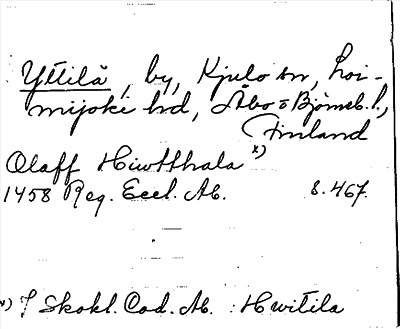 Yttilä, by, Kjulo sn, Loi-
mijoki hd, Åbo o Björneb. l.,
Finland
Olaff Hiwtthala x)
1458 Reg. Eccl. Ab. s. 467.
x) I Skokl. Cod. Ab. : Hwitila